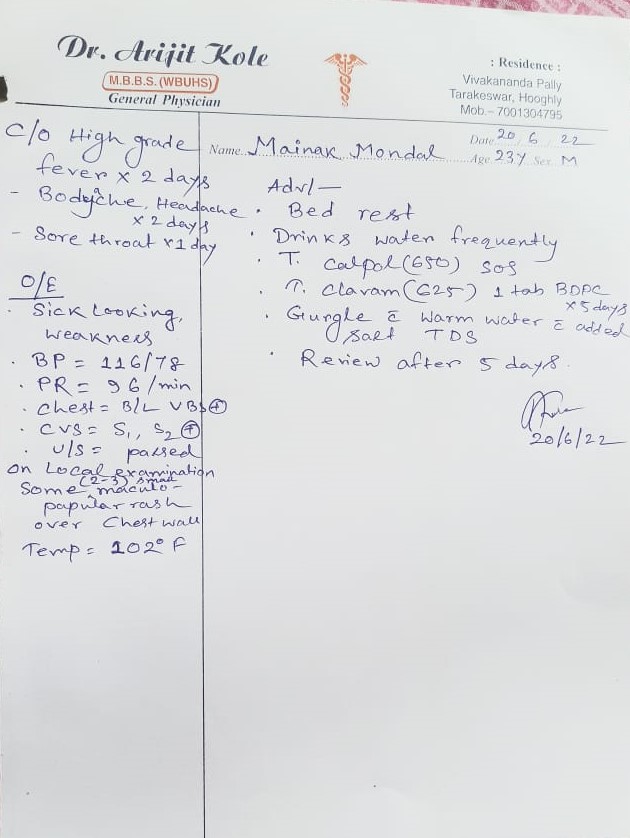 Dr. Arijit Kole
M.B.B.S. (WBUHS)
General Physician
: Residence :
Vivakananda Pally
Tarakeswar, Hooghly
Mob.- 7001304795
Date 20/6/22
Name. Mainak Mondal Age 23Y Sex M
C/O High grade
fever x 2 days
- Bodyache, Headache
x 2 days
- Sore throat x 1 day
O/E
· Sick Looking,
weakness
· BP = 116/78
· PR = 96/min
· Chest = B/L VBS ⊕
· CVS = S1, S2 ⊕
· U/S = passed
on Local examination
Some (2-3) small maculo-
papular rash
over Chest wall
Temp = 102° F
Adv/—
· Bed rest
· Drinks water frequently
· T. Calpol (650) SOS
· T. Clavam (625) 1 tab BDPC
x 5 days
· Gurgle c̄ warm water c̄ added
salt TDS
· Review after 5 days.
20/6/22